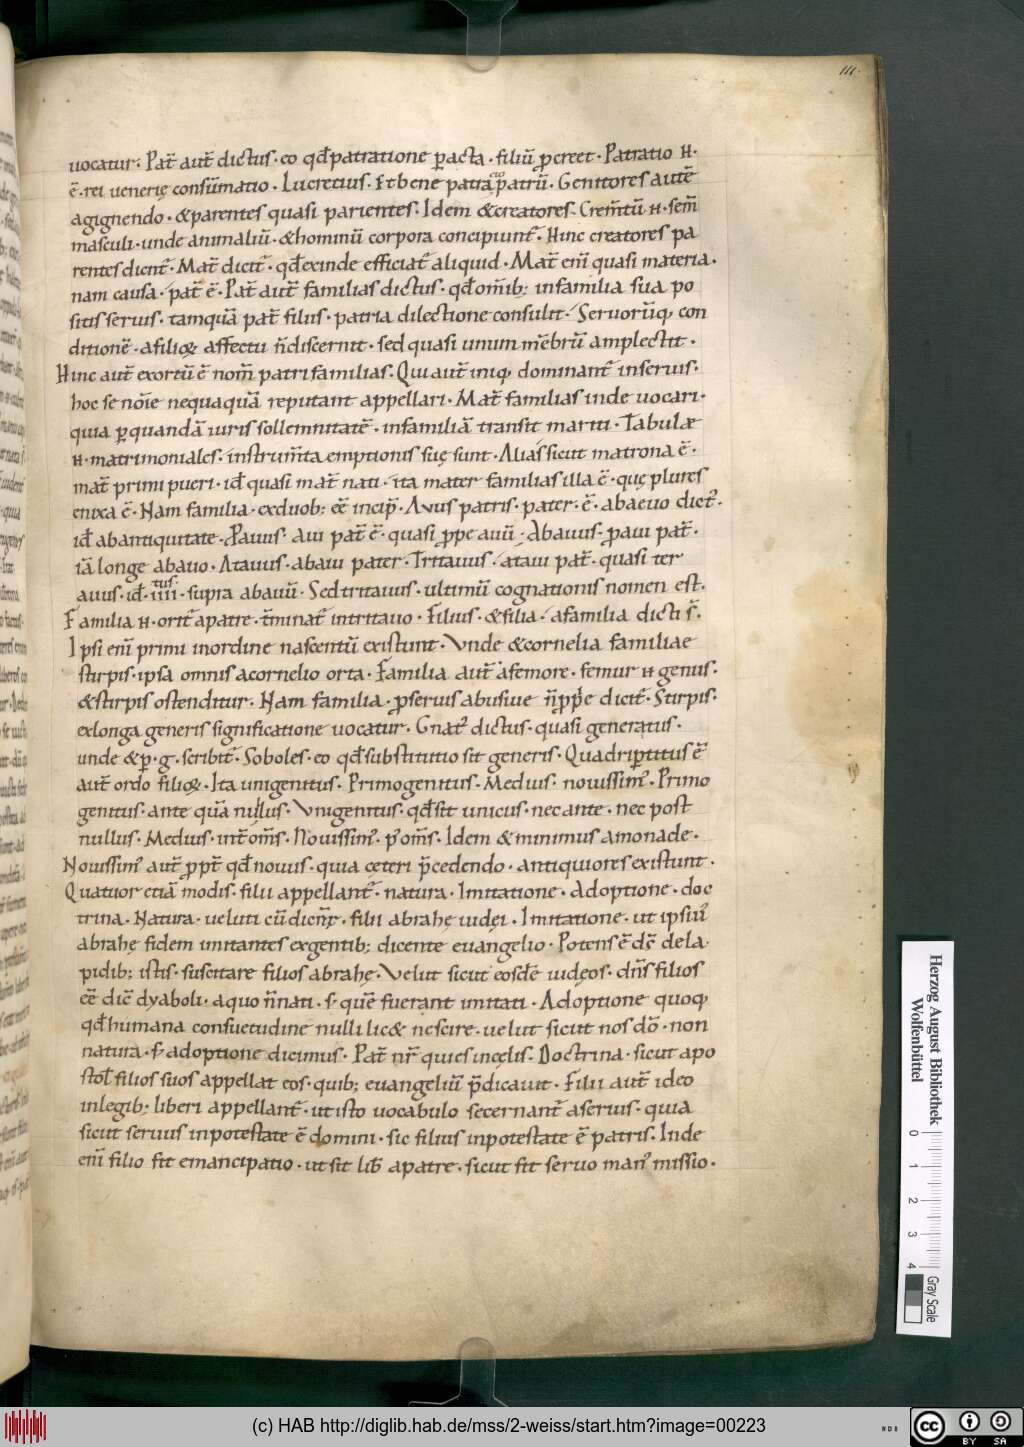 III·
uocatur· Pat̄ aut̄ dictus· eo qđ patratione ꝑacta· filiū ꝓcreet· Patratio ħ·
ē· rei uenerię consūmatio· Lucretius· Et bene patra patrū· Genitores autē
agignendo· &parentes quasi parientes· Idem &creatores· Crem̄tū ħ· sem̄
masculi· unde animaliū· &hominū corpora concipiunt̄· Hinc creatores pa
rentes dicnt̄· Mat̄ dicit̄· qđ exinde efficiat̄ aliquid· Mat̄ eni quasi materia·
nam causa· pat̄ ē· Pat̄ aut̄ familias dictus· qđ om̄ib; infamilia sua po
sitis seruis· tamquā pat̄ filius· patria dilectione consulit· Seruorūq; con
ditionē· afilioꝝ affectu n̄ discernit· sed quasi unum mēbrū amplectit·
Hinc aut̄ exortū ē nom̄ patrifamilias· Qui aut̄ iniq; dominant̄ inseruis·
hoc se nōie nequaquā reputant appellari· Mat̄ familias inde uocari·
quia ꝑquandā iuris sollemnitatē· infamiliā transit mariti· Tabulæ
ħ· matrimoniales· instrum̄ta emptionis suę sunt· Alias sicut matrona ē·
mat̄ primi pueri· iđ quasi mat̄ nati· ita mater familias illa ē· quę plures
enixa ē· Nam familia· exduob; eē incip̄· Auus patris· pater· ē· abaeuo dict᷒·
iđ abantiquitate· Pauus· aui pat̄ ē· quasi ꝓpe auū· Abauus· ꝓaui pat̄·
iā longe abauo· Atauus· abaui pater· Tritauus· ataui pat̄· quasi ter
tus·
auus· iđ· iiii· supra abauū· Sed tritauus· ultimū cognationis nomen est·
Familia ħ· orit̄ apatre· t̄minat̄ intritauo· Filius· &filia· afamilia dicti s̄·
Ipsi eni primi inordine nascentū existunt· Vnde &cornelia familiae
stirpis· ipsa omnis acornelio orta· Familia aut̄ afemore· femur ħ genus·
&stirpis ostenditur· Nam familia· ꝓseruis abusiue n̄ꝓpe dicit̄· Stirpis·
exlonga generis significatione uocatur· Gnat᷒ dictus· quasi generatus·
unde &ꝑ·g· scribit̄· Soboles· eo qđ substitutio sit generis· Quadriꝑtitus ē
aut̄ ordo filioꝝ· Ita unigenitus· Primogenitus· Medius· nouissim᷒· Primo
genitus· ante quā nullus· Vnigenitus· qđ sit unicus· nec ante· nec post
nullus· Medius· int̄ om̄s· Nouissim᷒· p᷒ om̄s· Idem &minimus amonade·
Nouissim᷒ aut̄ ꝓpt̄ qđ nouus· quia cęteri p̄cedendo· antiquiores existunt·
Quatuor etiā modis· filii appellant̄· natura· Imitatione· Adoptione· doc
trina· Natura· ueluti cū dicnt̄· filii abrahę iudęi· Imitatione· ut ipsiu᷒
abrahę fidem imitantes exgentib; dicente euangelio· Potens ē dˉs dela·
pidib; istis· suscitare filios abrahę· Velut sicut eosdē iudęos· dn̄s filios
eē dic̄ dyaboli· aquo n̄ nati· s; quē fuerant imitati· Adoptione quoq;
qđ humana consuetudine nulli lic& nescire· uelut sicut nos dō· non
natura· s; adoptione dicimus· Pat̄ nr̄ qui es incęlis· Doctrina· sicut apo
stol̄ filios suos appellat eos· quib; euangeliū p̄dicauit· Filii aut̄ ideo
inlegib; liberi appellant̄· ut isto uocabulo secernant̄ aseruis· quia
sicut seruus inpotestate ē domini· sic filius inpotestate ē patris· Inde
eni filio fit emancipatio· ut sit lib̄ apatre· sicut fit seruo man᷒ missio·
Herzog August Bibliothek
Wolfenbüttel
0 1 2 3 4
Gray Scale
(c) HAB http://diglib.hab.de/mss/2-weiss/start.htm?image=00223
WDB
cc BY SA